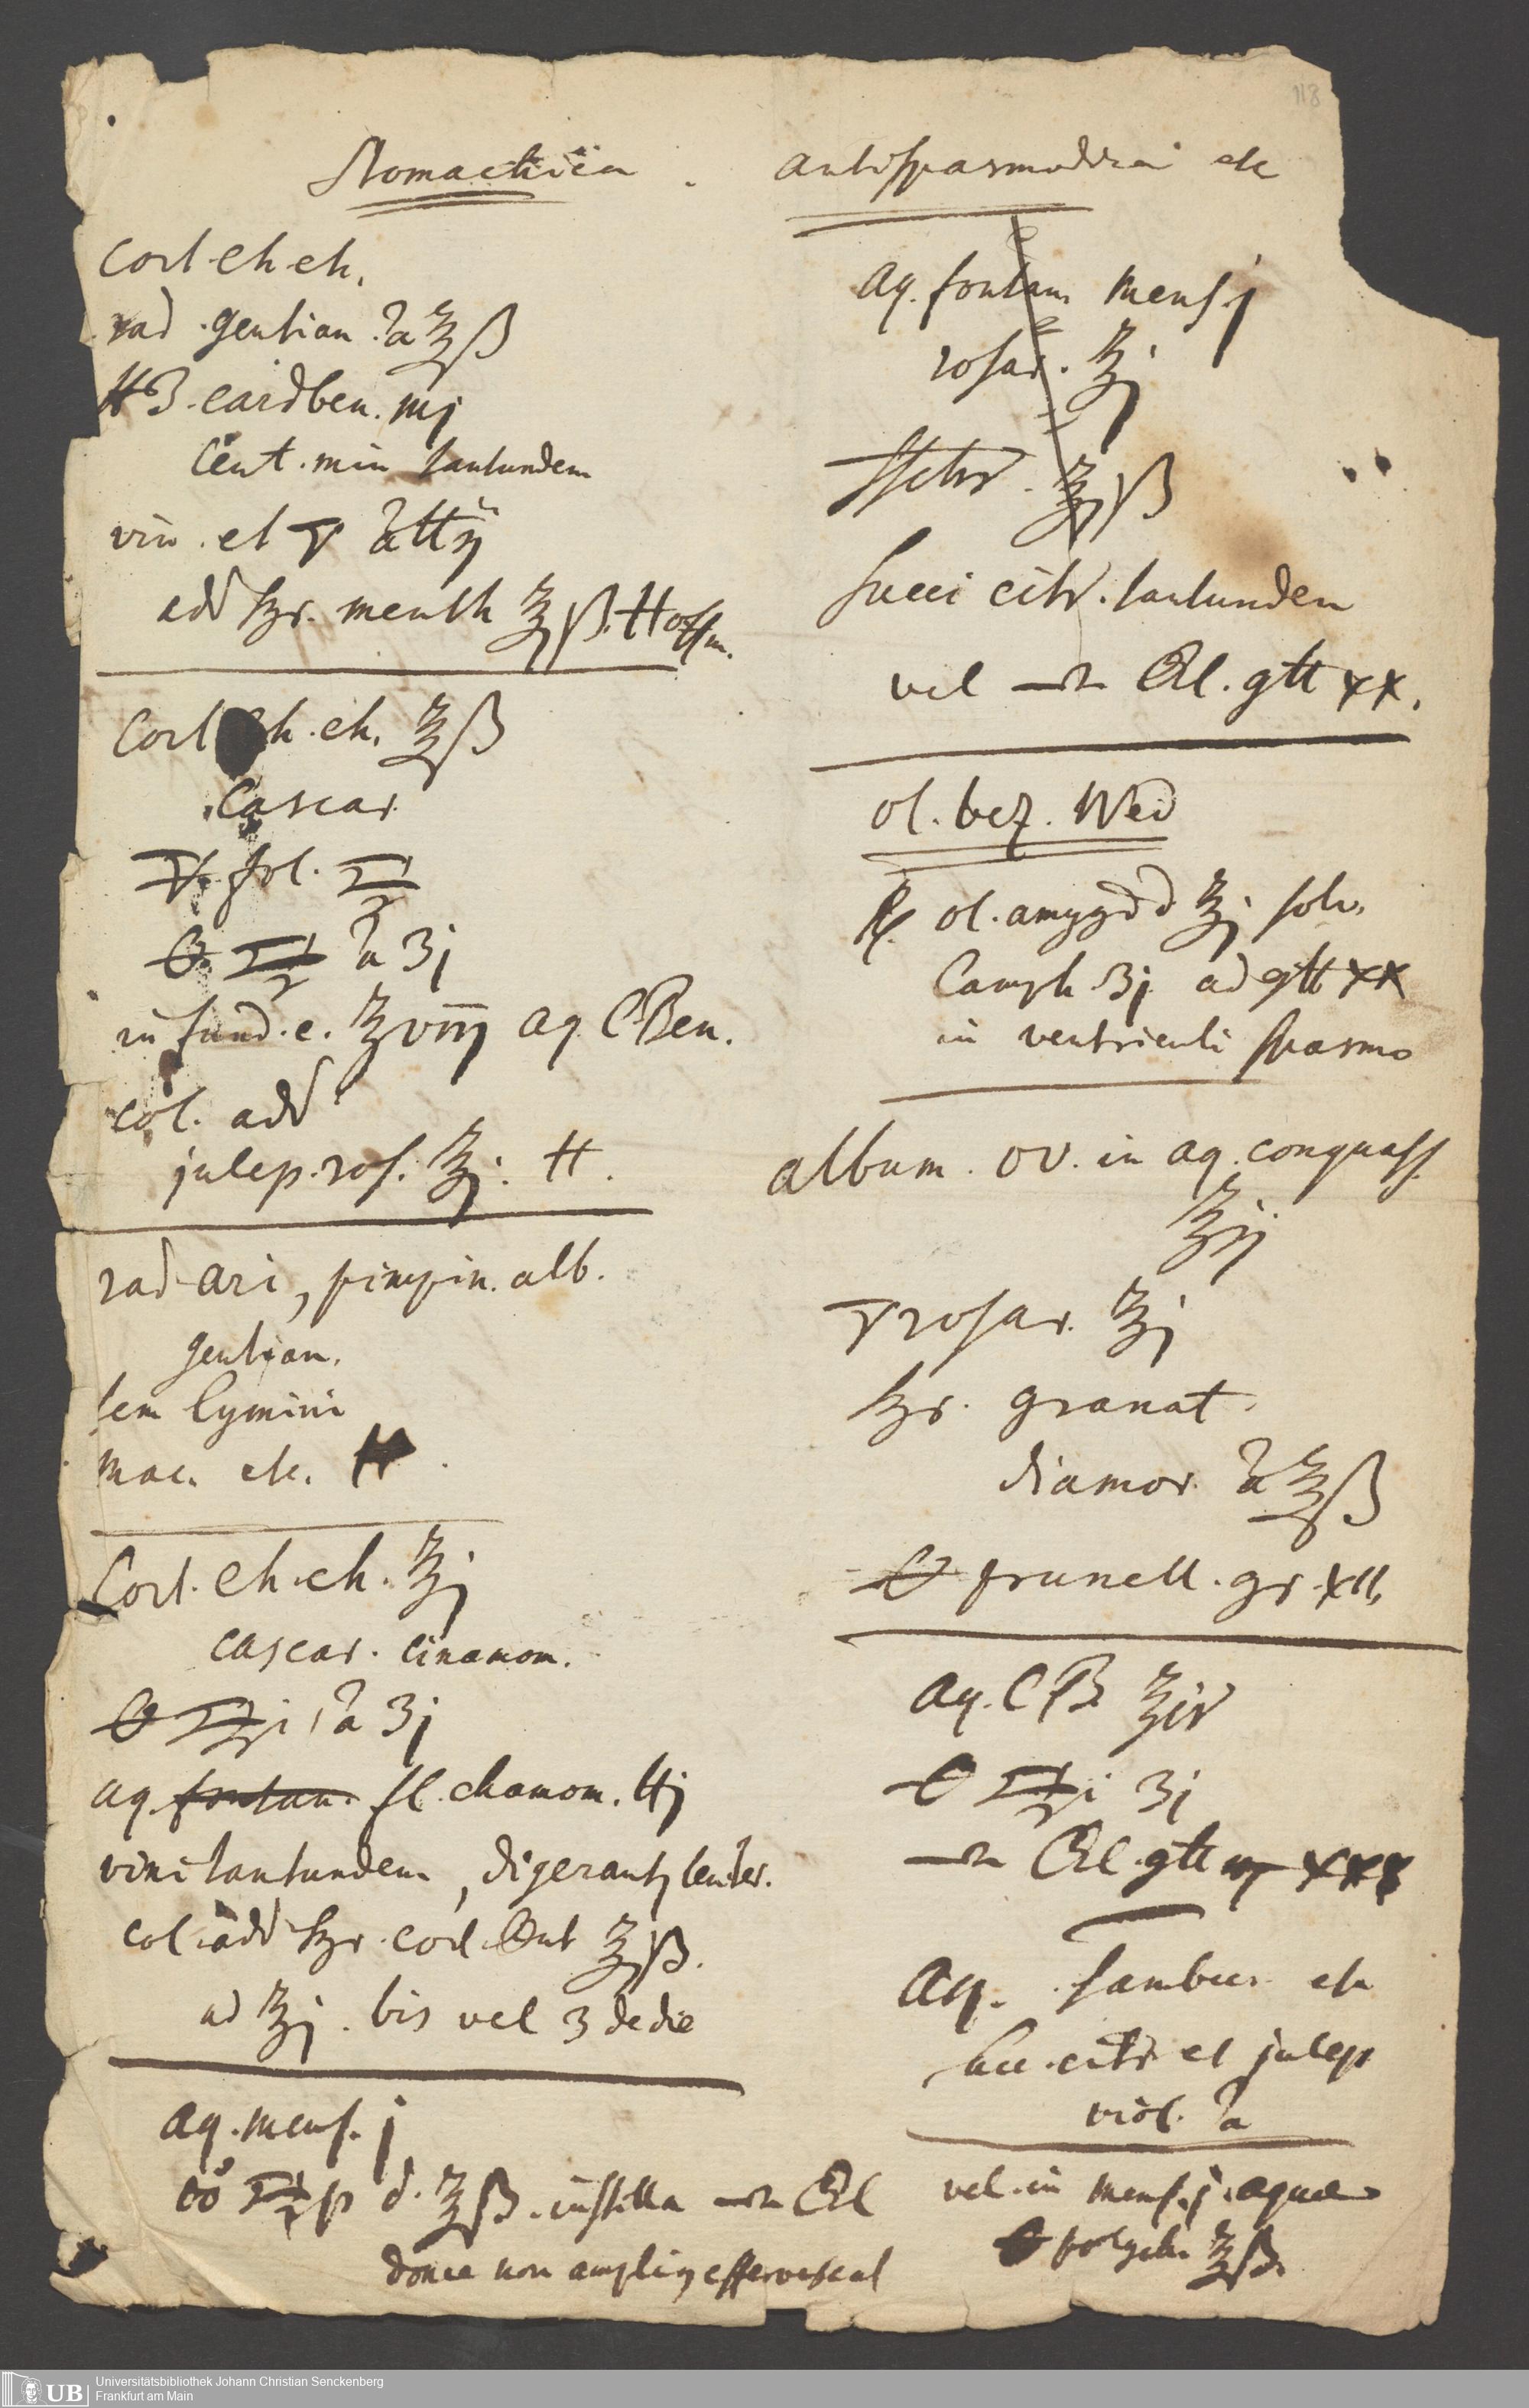 118
Stomachica. antispasmodica etc
Cort. ch. ch.
rad. gentian. ãa ℥ß
HB. cardben. mj
Cent. min tantundem
vin. et ▽ ãa ℔ij
add syr. menth ℥jß. Hoffm.
Cort ch. ch. ℥ß
Cascar.
fol.
ãa ʒj
infund. c. ℥viij aq CBen.
col. add
julep. ros. ℥j. H.
rad ari, pimpin. alb.
gentian.
sem Cymini
mac. etc. H.
Cort. ch. ch. ℥j
cascar. cinamom.
ãa ʒj
aq. fontan. fl. chamom. ℔j
vini tantundem, digerant leniter.
col. add syr. cort. Aut ℥jß.
ad ℥j. bis vel 3 de die
aq. mens. j
d. ℥ß. instilla Oil
donec non amplius effervescat
aq. fontan mens. j
rosar. ℥j
citr. ℥jß
Succi citr. tantundem
vel gtt xx.
ol. bez. Wed
℞ ol. amygd d ℥j solv.
Camph ʒj ad gtt xx
in ventriculi spasmo
album. ov. in aq. conquass.
℥ij
▽ rosar. ℥j
syr. granat.
diamor. ãa ℥ß
prunell. gr. xii.
aq. CB ℥iv
ʒj
gtt xxx
Aq. sambuc. etc
suc. citr et julep
viol. ãa
vel. in mens. j. aquae
polych. ℥ß.
Universitätsbibliothek Johann Christian Senckenberg
Frankfurt am Main
UB